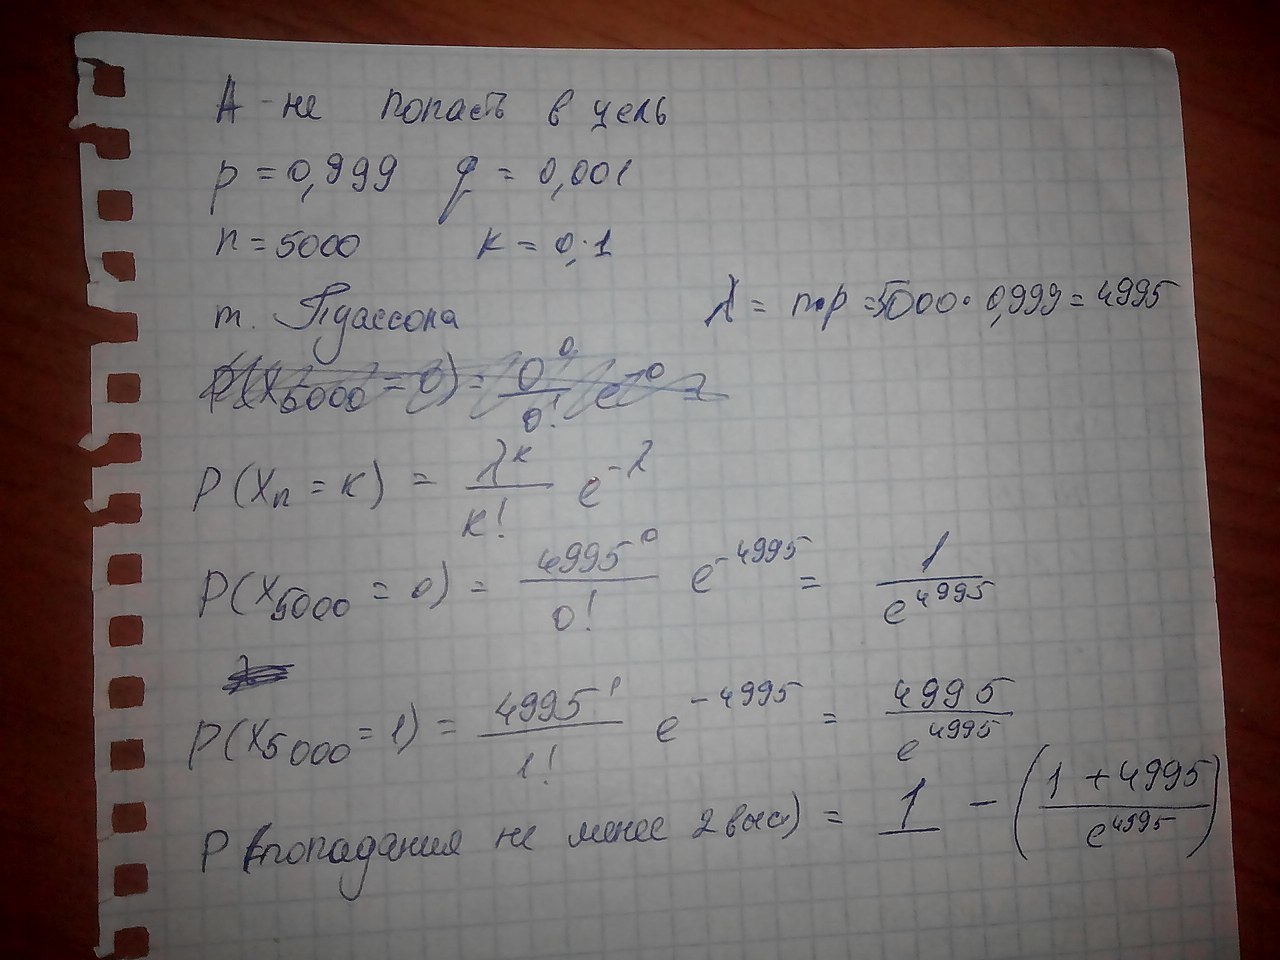 A - не попасть в цель
p = 0,999 q = 0,001
n = 5000 k = 0,1
т. Пуассона λ = n·p = 5000 · 0,999 = 4995
P(X₅₀₀₀ = 0) = 0⁰/0! e⁻⁰ =
P(Xₙ = k) = λᵏ/k! e^-λ
P(X₅₀₀₀ = 0) = 4995⁰/0! e^-4995 = 1/e^4995
P(X₅₀₀₀ = 1) = 4995¹/1! e^-4995 = 4995/e^4995
P(попадания не менее 2 выс) = 1 - (1 + 4995/e^4995)